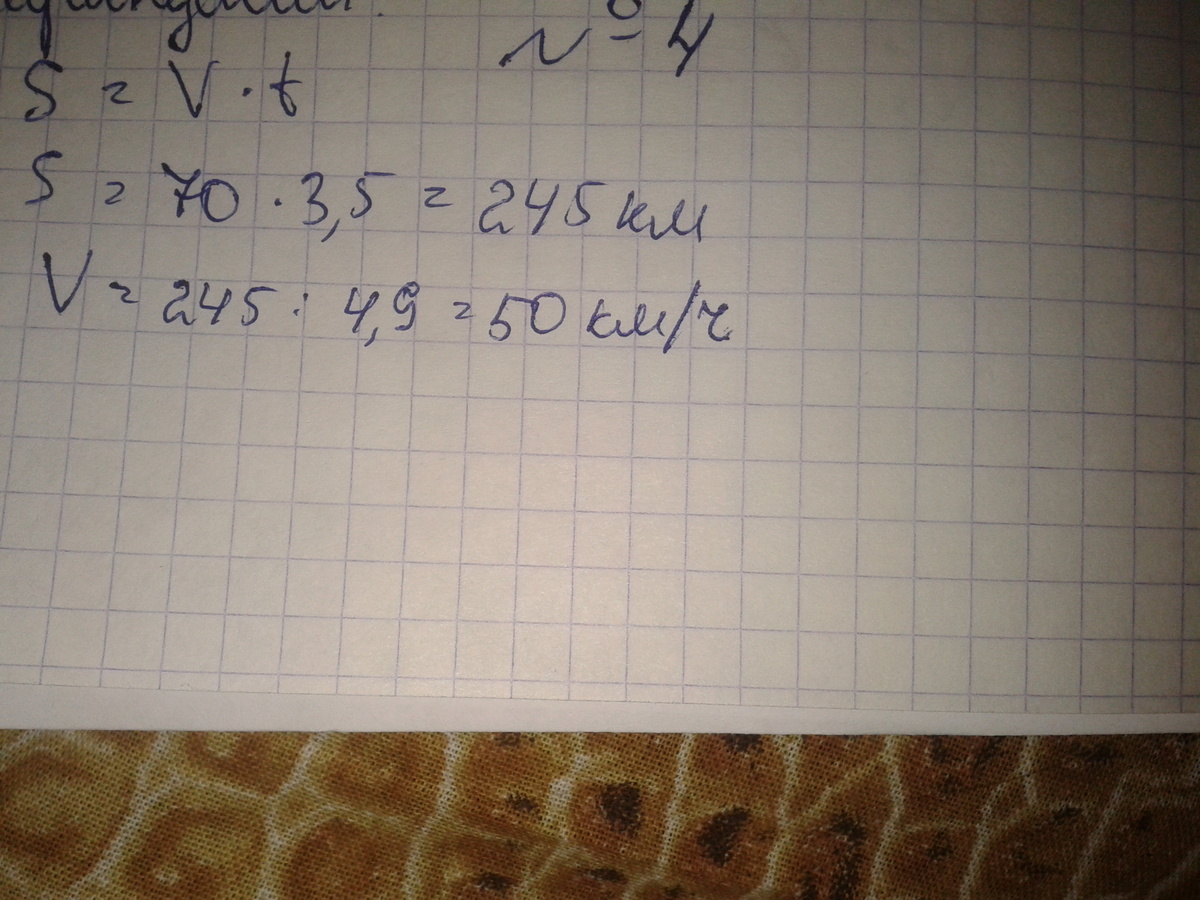 № 4
S = V · t
S = 70 · 3,5 = 245 км
V = 245 : 4,9 = 50 км/ч